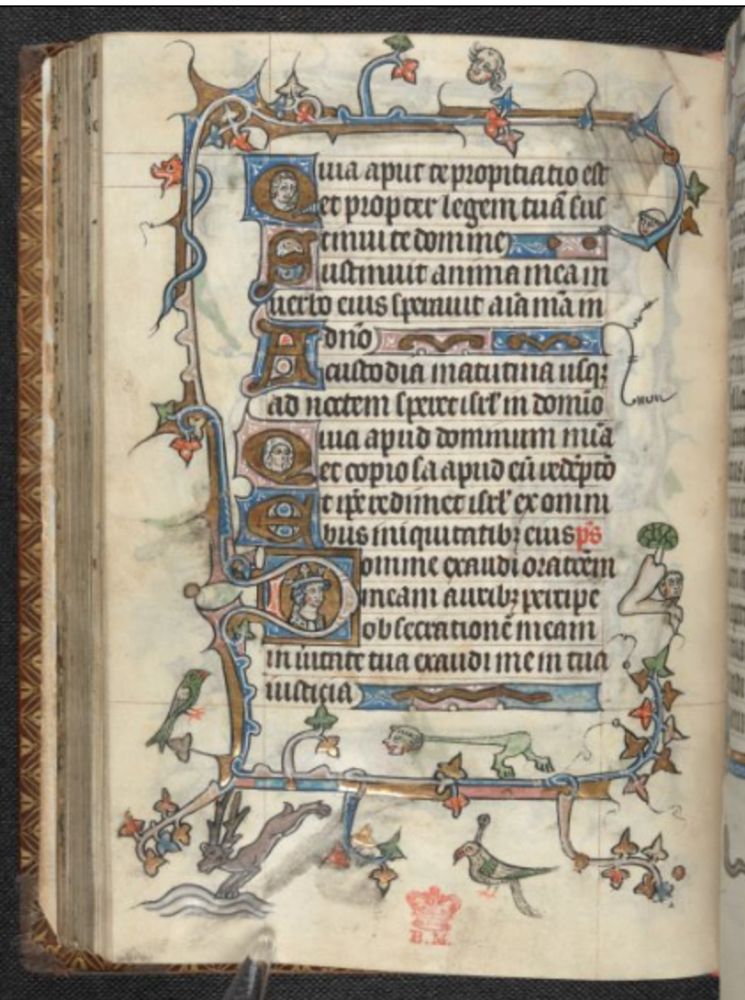 Quia aput te propitiatio est
et propter legem tuā sus
tinui te domine
Sustinuit anima mea in
uerbo eius sperauit aīa mā in
dn̄o
A custodia matutina usqꝫ
ad noctem speret isrl̄ in domīo
Quia apud dominum mīa
et copiosa apud eū redēptō
Et ip̄e redimet isrl̄ ex omni
bus iniquitatibꝫ eius ps̄
Domine exaudi oratōem
meam auribꝫ percipe
obsecrationē meam
in ueritate tua exaudi me in tua
iusticia
B.M.